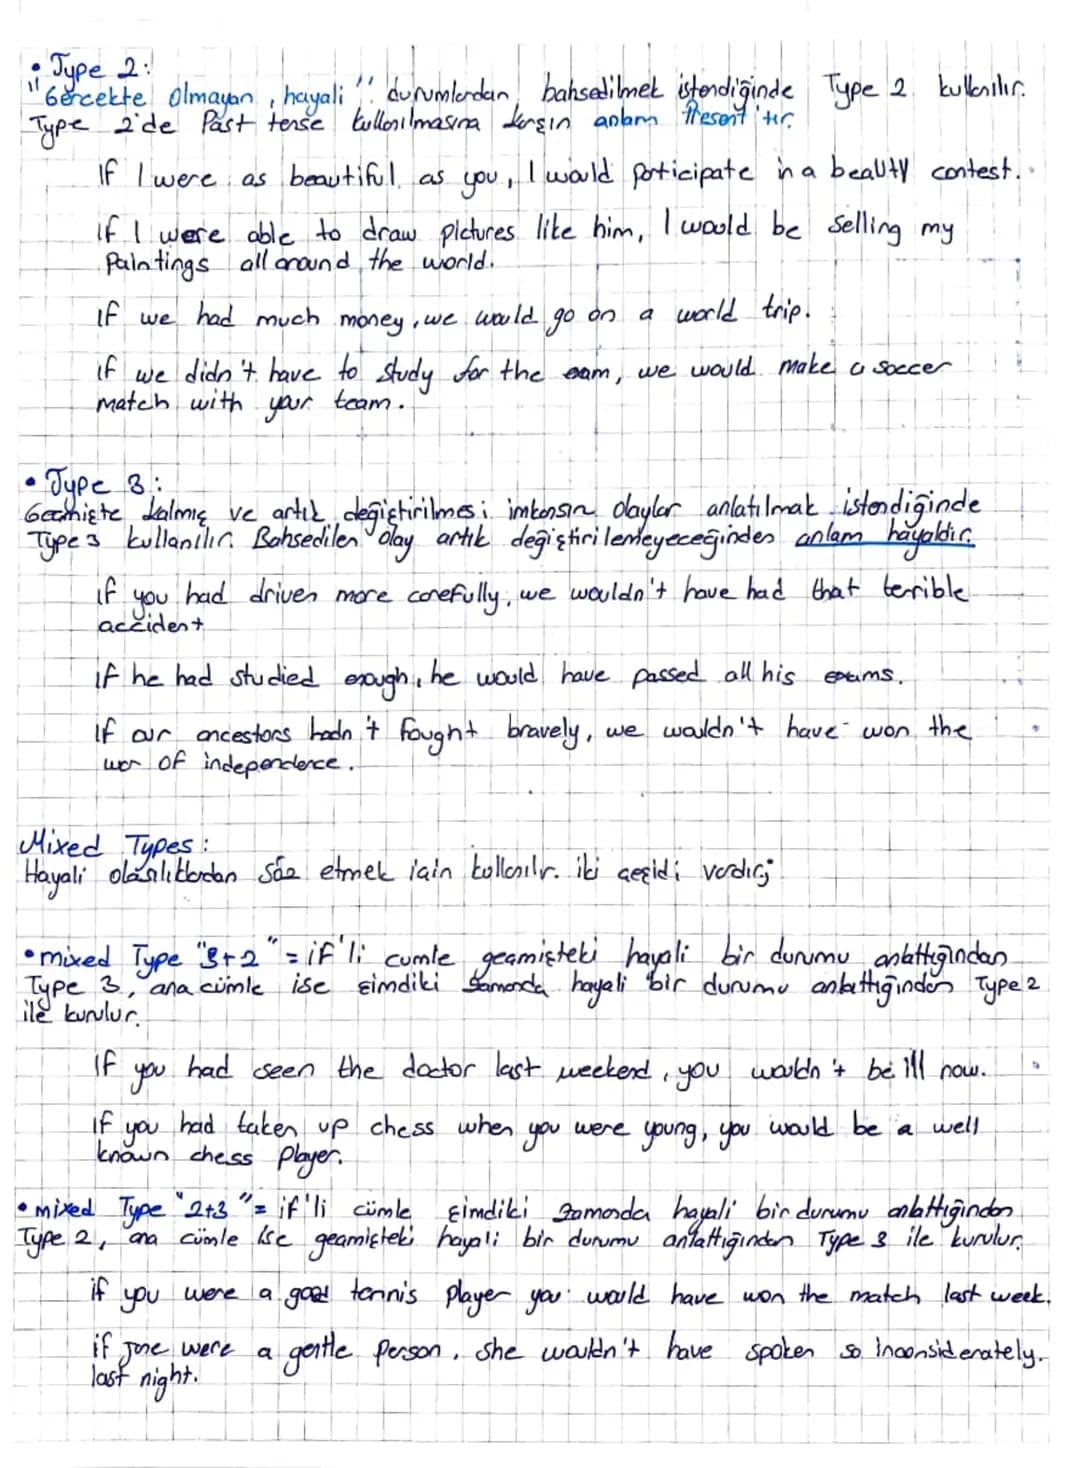 • Type 2:
"Gerçekte olmayan, hayali" durumlardan bahsedilmek istendiğinde Type 2 kullanılır.
Type 2'de Past tense kullanılmasına karşın anlam Present'tır.
If I were as beautiful as you, I would participate in a beauty contest.
if I were able to draw pictures like him, I would be selling my
paintings all around the world.
if we had much money, we would go on a world trip.
if we didn't have to study for the exam, we would make a soccer
match with your team.
• Type 3:
Geçmişte kalmış ve artık değiştirilmesi imkansız olaylar anlatılmak istendiğinde
Type 3 kullanılır. Bahsedilen olay artık değiştirilemeyeceğinden anlam hayaldir.
if you had driven more carefully, we wouldn't have had that terrible
accident
if he had studied enough, he would have passed all his exams.
If our ancestors hadn't fought bravely, we wouldn't have won the
war of independence.
Mixed Types:
Hayali olasılıklardan söz etmek için kullanılır. iki çeşidi vardır;
• mixed Type "3+2" = if'li cumle geçmişteki hayali bir durumu anlattığından
Type 3, ana cümle ise şimdiki zamanda hayali bir durumu anlattığından Type 2
ile kurulur.
If you had seen the doctor last weekend, you wouldn't be ill now.
if you had taken up chess when you were young, you would be a well
known chess player.
• mixed Type "2+3" = if'li cümle şimdiki zamanda hayali bir durumu anlattığından
Type 2, ana cümle ise geçmişteki hayali bir durumu anlattığından Type 3 ile kurulur.
if you were a good tennis player you would have won the match last week.
if Jane were a gentle person, she wouldn't have spoken so inconsiderately.
last night.